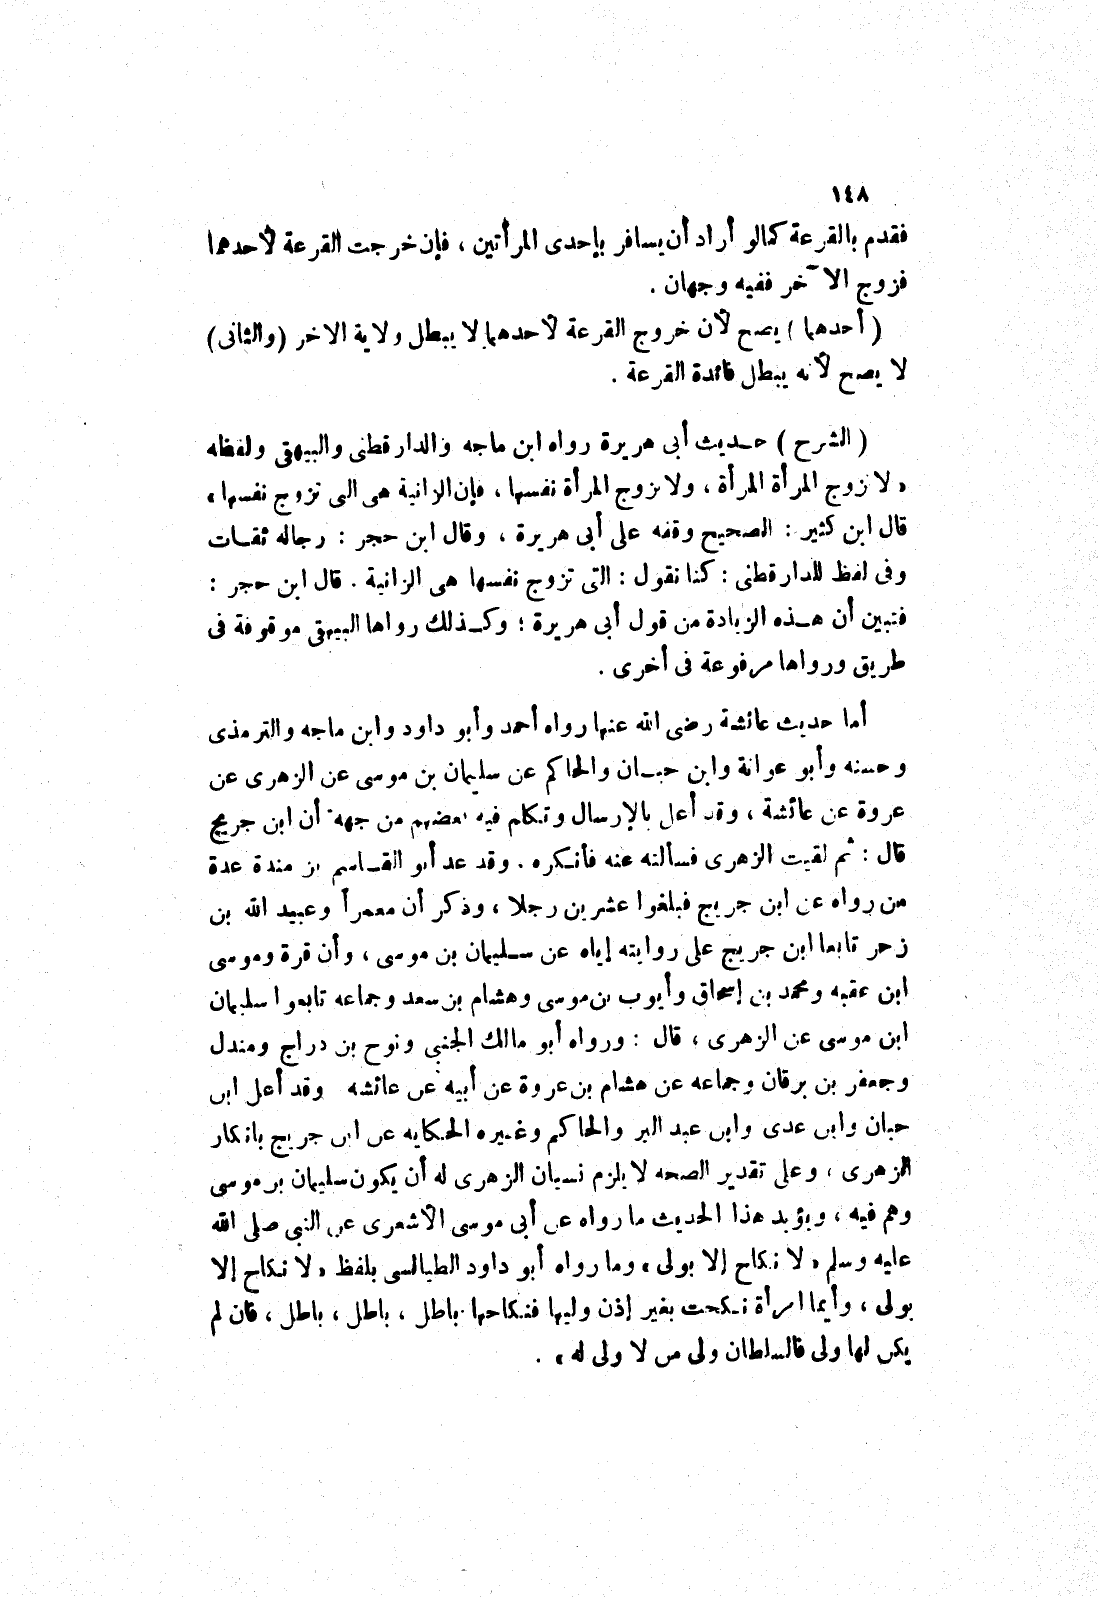 ١٤٨
فقدم بالقرعة كمالو أراد أن يسافر بإحدى المرأتين ، فإن خرجت القرعة لأحدهما
فزوج الآخر ففيه وجهان .
( أحدهما ) يصح لأن خروج القرعة لأحدهما لا يبطل ولاية الاخر ( والثانى )
لا يصح لأنه يبطل فائدة القرعة .
( الشرح ) حـديث أبى هريرة رواه ابن ماجه والدارقطنى والبيهقى ولفظه
« لا تزوج المرأة المرأة ، ولا تزوج المرأة نفسها ، فإن الزانية هى التى تزوج نفسها »
قال ابن كثير : الصحيح وقفه على أبى هريرة ، وقال ابن حجر : رجاله ثقـات
وفى لفظ للدارقطنى : كنا نقول : التى تزوج نفسها هى الزانية . قال ابن حجر :
فتبين أن هـذه الزيادة من قول أبى هريرة ؛ وكـذلك رواها البيهقى موقوفة فى
طريق ورواها مرفوعة فى أخرى .
أما حديث عائشة رضى الله عنها رواه أحمد وأبو داود وابن ماجه والترمذى
وحسنه وأبو عوانة وابن حبـان والحاكم عن سليمان بن موسى عن الزهرى عن
عروة عن عائشة ، وقد أعل بالإرسال وتكلم فيه بعضهم من جهة أن ابن جريج
قال : ثم لقيت الزهرى فسألته عنه فأنـكره . وقد عد أبو القـاسم بن مندة عدة
من رواه عن ابن جريج فبلغوا عشرين رجلا ، وذكر أن معمراً وعبيد الله بن
زحر تابعا ابن جريج على روايته إياه عن سـليمان بن موسى ، وأن قرة وموسى
ابن عقبه ومحمد بن إسحاق وأيوب بن موسى وهشام بن سعد وجماعه تابعوا سليمان
ابن موسى عن الزهرى ، قال : ورواه أبو مالك الجنبى ونوح بن دراج ومندل
وجعفر بن برقان وجماعه عن هشام بن عروة عن أبيه عن عائشه وقد أعل ابن
حبان وابن عدى وابن عبد البر والحاكم وغـيره الحكايه عن ابن جريج بانكار
الزهرى ، وعلى تقدير الصحه لا يلزم نسيان الزهرى له أن يكون سليمان بن موسى
وهم فيه ، ويؤيد هذا الحديث ما رواه عن أبى موسى الأشعرى عن النبى صلى الله
عليه وسلم « لا نكاح إلا بولى » وما رواه أبو داود الطيالسى بلفظ « لا نكاح إلا
بولى ، وأيما امرأة نـكحت بغير إذن وليها فنـكاحها باطل ، باطل ، باطل ، فان لم
يكن لها ولى فالسلطان ولى من لا ولى له » .